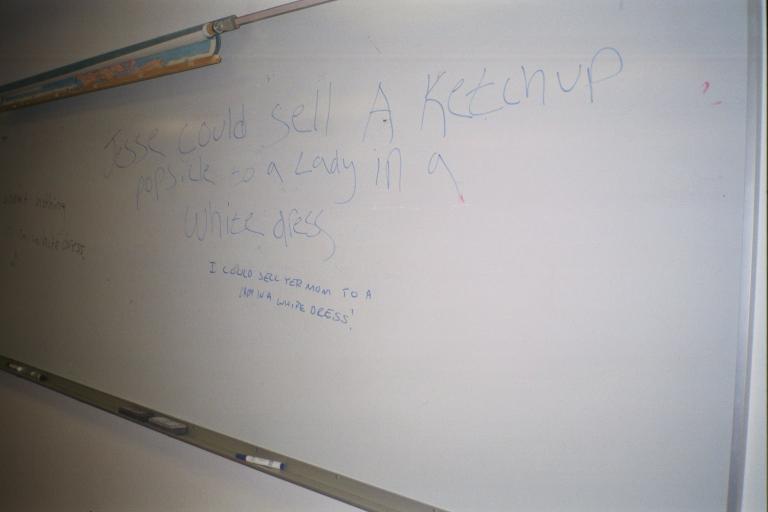 Jesse could sell A Ketchup
popsicle to a Lady in a
White dress
I COULD SELL YER MOM TO A
LADY IN A WHITE DRESS!
nothing
white dress